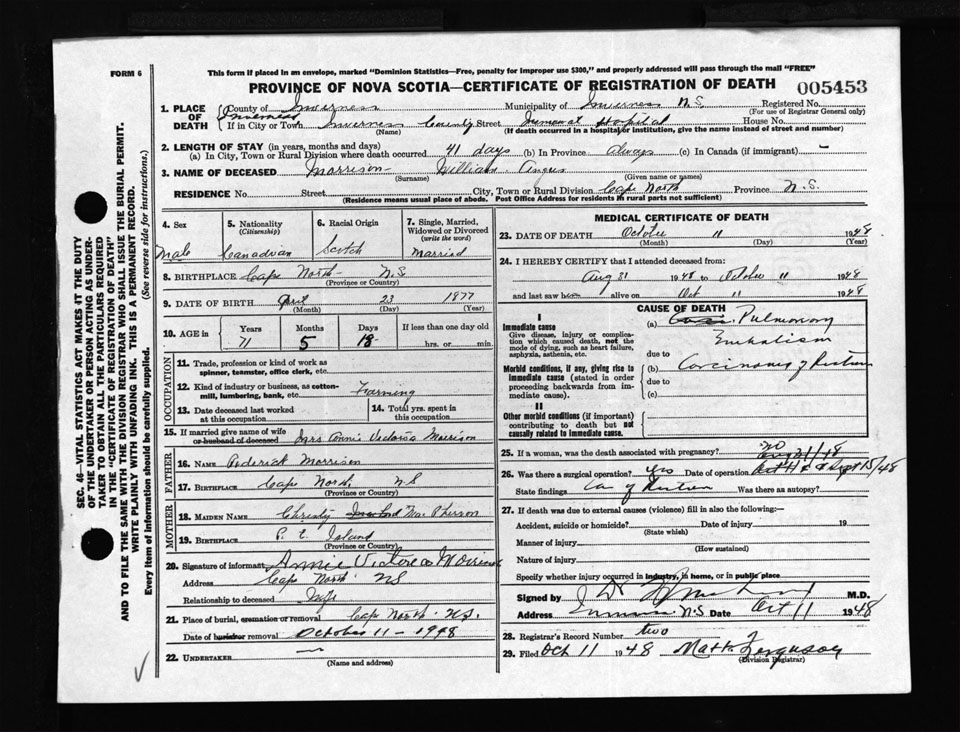 FORM 6
This form if placed in an envelope, marked "Dominion Statistics—Free, penalty for improper use $300," and properly addressed will pass through the mail "FREE"
PROVINCE OF NOVA SCOTIA—CERTIFICATE OF REGISTRATION OF DEATH 005453
1. PLACE OF DEATH
County of Inverness Municipality of Inverness N.S. Registered No.
(For use of Registrar General only)
Inverness
If in City or Town Inverness County Street Hospital House No.
(Name) (If death occurred in a hospital or institution, give the name instead of street and number)
2. LENGTH OF STAY (in years, months and days)
(a) In City, Town or Rural Division where death occurred 41 days (b) In Province Always (c) In Canada (if immigrant) —
3. NAME OF DECEASED Morrison William Angus
(Surname) (Given name or names)
RESIDENCE No. Street City, Town or Rural Division Cape North Province N.S.
(Residence means usual place of abode. Post Office Address for residents in rural parts not sufficient)
4. Sex
Male
5. Nationality
(Citizenship)
Canadian
6. Racial Origin
Scotch
7. Single, Married, Widowed or Divorced
(write the word)
Married
8. BIRTHPLACE Cape North N.S
(Province or Country)
9. DATE OF BIRTH April 23 1877
(Month) (Day) (Year)
10. AGE in Years Months Days If less than one day old
71 5 18 hrs. or min.
OCCUPATION
11. Trade, profession or kind of work as
spinner, teamster, office clerk, etc.
12. Kind of industry or business, as cotton-
mill, lumbering, bank, etc. Farming
13. Date deceased last worked
at this occupation
14. Total yrs. spent in
this occupation
15. If married give name of wife
or husband of deceased Mrs Annie Victoria Morrison
FATHER
16. NAME Roderick Morrison
17. BIRTHPLACE Cape North. N S
(Province or Country)
MOTHER
18. MAIDEN NAME Christy MacPherson
19. BIRTHPLACE P. E. Island
(Province or Country)
20. Signature of informant Annie Victoria Morrison
Address Cape North NS
Relationship to deceased Wife
21. Place of burial, cremation or removal Cape North. N.S.
Date of burial or removal October 11 - 1948
22. UNDERTAKER —
(Name and address)
MEDICAL CERTIFICATE OF DEATH
23. DATE OF DEATH October 11 1948
(Month) (Day) (Year)
24. I HEREBY CERTIFY that I attended deceased from:
Aug 31 1948 to October 11 1948
and last saw h alive on Oct 11 1948
CAUSE OF DEATH
I
Immediate cause
Give disease, injury or complica-
tion which caused death, not the
mode of dying, such as heart failure,
asphyxia, asthenia, etc.
(a) Pulmonary
Embolism
due to
Morbid conditions, if any, giving rise to
immediate cause (stated in order
proceeding backwards from im-
mediate cause).
(b) Carcinoma of Rectum
due to
(c)
II
Other morbid conditions (if important)
contributing to death but not
causally related to immediate cause.
25. If a woman, was the death associated with pregnancy? no
26. Was there a surgical operation? Yes Date of operation Sept 15/48
State findings Ca of Rectum Was there an autopsy?
27. If death was due to external causes (violence) fill in also the following:—
Accident, suicide or homicide? Date of injury 19
(State which)
Manner of injury
(How sustained)
Nature of injury
Specify whether injury occurred in industry, in home, or in public place
Signed by M.D.
Address N.S Date Oct 11 1948
28. Registrar's Record Number two
29. Filed Oct 11 1948 Matt. J Ferguson
(Division Registrar)
SEC. 46—VITAL STATISTICS ACT MAKES IT THE DUTY
OF THE UNDERTAKER OR PERSON ACTING AS UNDER-
TAKER TO OBTAIN ALL THE PARTICULARS REQUIRED
IN THE "CERTIFICATE OF REGISTRATION OF DEATH"
AND TO FILE THE SAME WITH THE DIVISION REGISTRAR WHO SHALL ISSUE THE BURIAL PERMIT.
WRITE PLAINLY WITH UNFADING INK. THIS IS A PERMANENT RECORD.
Every item of information should be carefully supplied. (See reverse side for instructions.)